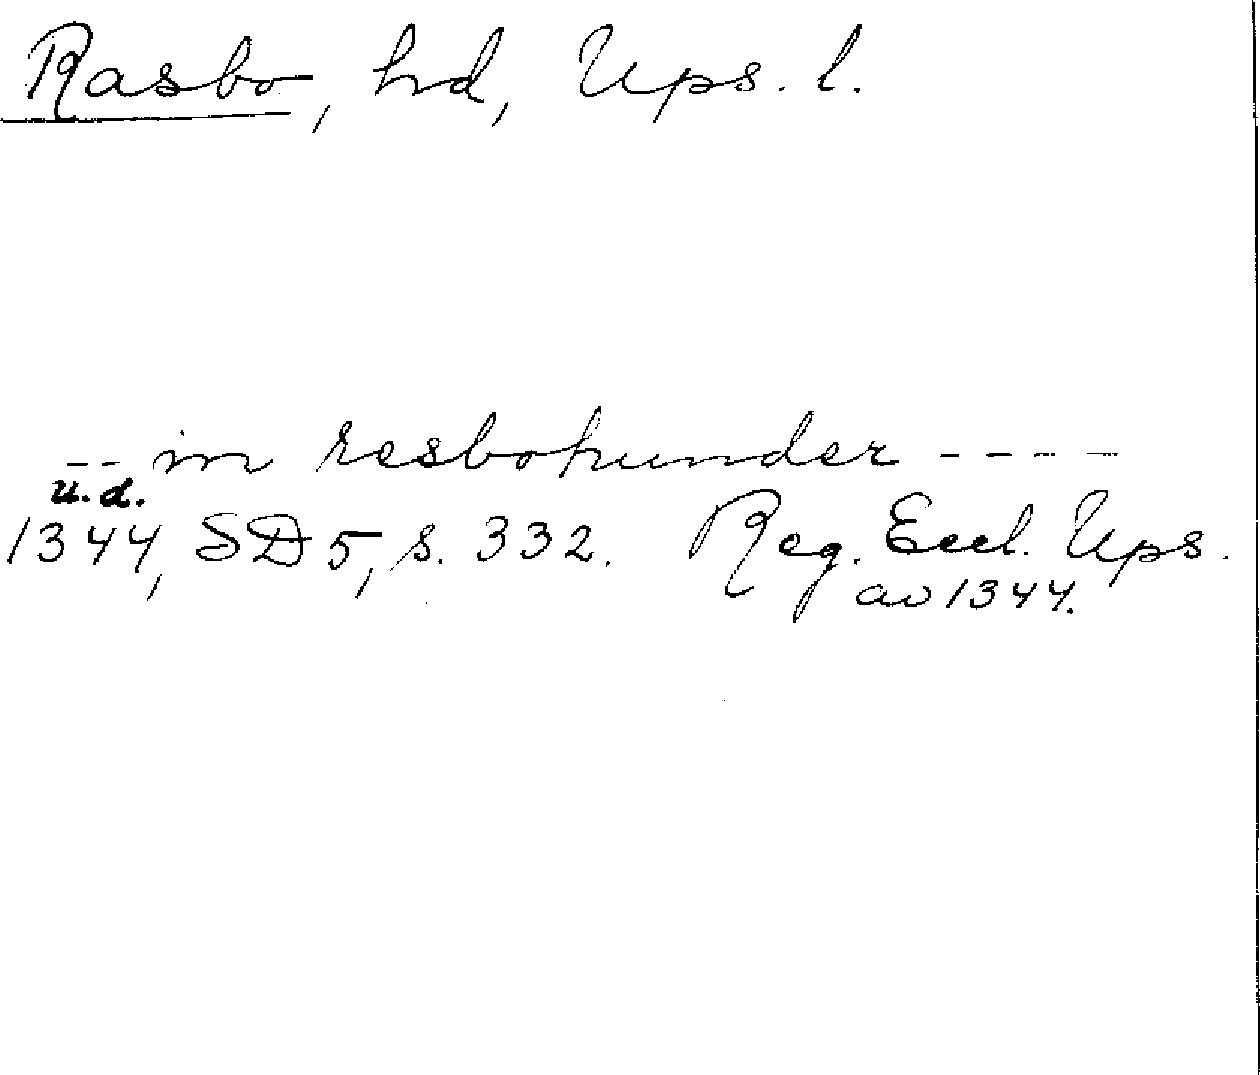 Rasbo, hd, Ups. l.
-- in resbohunder ----
u.d.
1344, SD 5, s. 332. Reg. Eccl. Ups.
av 1344.